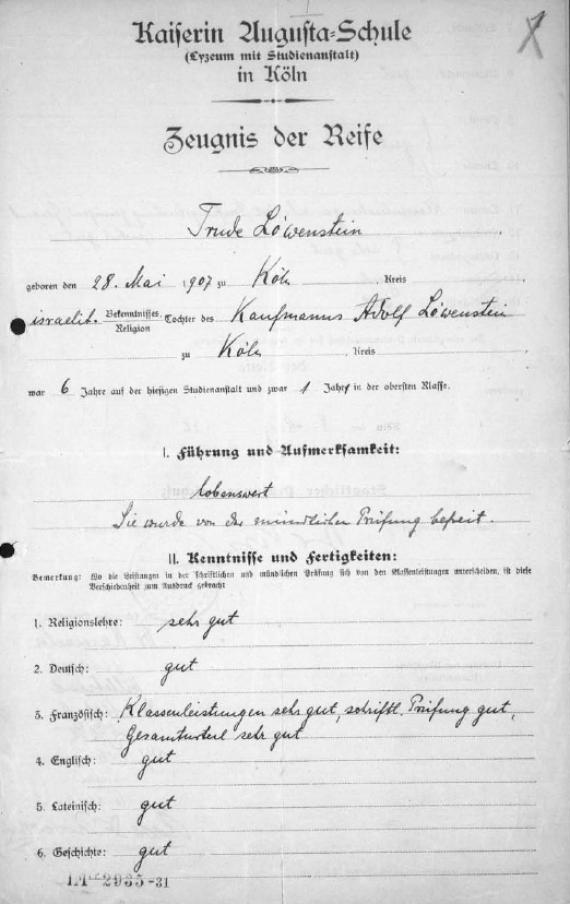 Kaiserin Augusta-Schule
(Lyzeum mit Studienanstalt)
in Köln
Zeugnis der Reife
Trude Löwenstein
geboren den 28. Mai 1907 zu Köln , Kreis
israelit. Bekenntnisses, Religion Tochter des Kaufmanns Adolf Löwenstein
zu Köln , Kreis
war 6 Jahre auf der hiesigen Studienanstalt und zwar 1 Jahr in der obersten Klasse.
I. Führung und Aufmerksamkeit:
lobenswert
Sie wurde von der mündlichen Prüfung befreit.
II. Kenntnisse und Fertigkeiten:
Bemerkung: Wo die Leistungen in der schriftlichen und mündlichen Prüfung sich von den Klassenleistungen unterscheiden, ist diese
Verschiedenheit zum Ausdruck gebracht
1. Religionslehre: sehr gut
2. Deutsch: gut
3. Französisch: Klassenleistungen sehr gut, schriftl. Prüfung gut,
Gesamturteil sehr gut
4. Englisch: gut
5. Lateinisch: gut
6. Geschichte: gut
2935-31